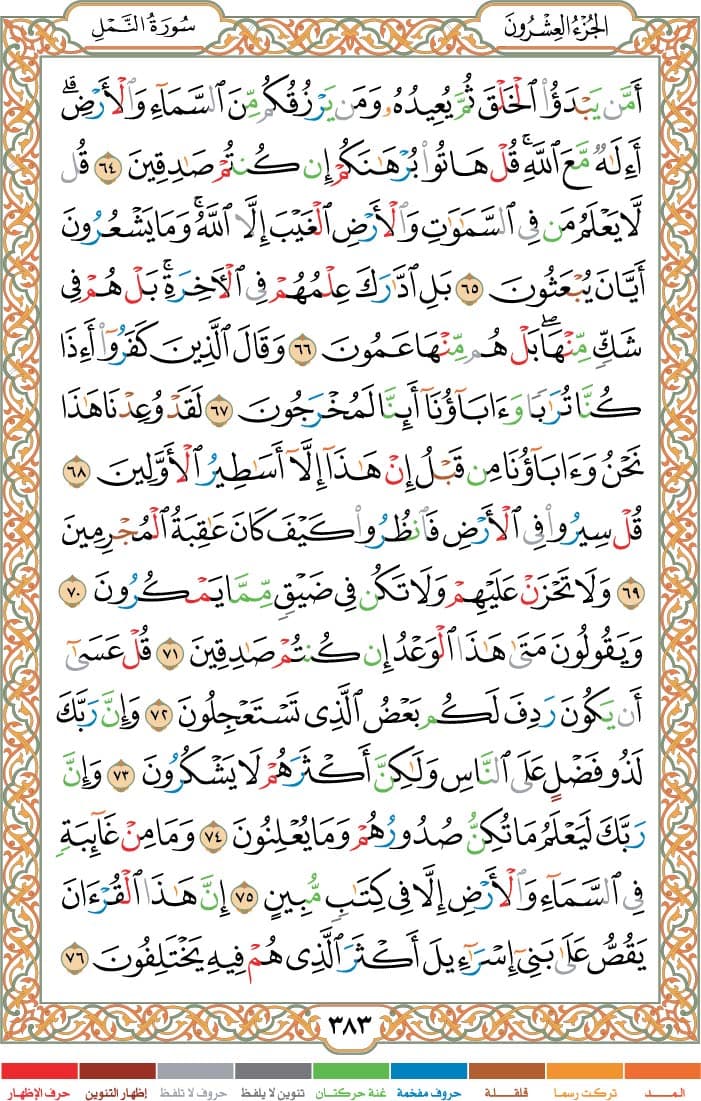 الجُزْءُ العِشْرُونَ
سُورَةُ النَّمْلِ
أَمَّن يَبْدَؤُا۟ ٱلْخَلْقَ ثُمَّ يُعِيدُهُۥ وَمَن يَرْزُقُكُم مِّنَ ٱلسَّمَآءِ وَٱلْأَرْضِ ۗ
أَءِلَٰهٌ مَّعَ ٱللَّهِ ۚ قُلْ هَاتُوا۟ بُرْهَٰنَكُمْ إِن كُنتُمْ صَٰدِقِينَ ٦٤ قُل
لَّا يَعْلَمُ مَن فِى ٱلسَّمَٰوَٰتِ وَٱلْأَرْضِ ٱلْغَيْبَ إِلَّا ٱللَّهُ ۚ وَمَا يَشْعُرُونَ
أَيَّانَ يُبْعَثُونَ ٦٥ بَلِ ٱدَّٰرَكَ عِلْمُهُمْ فِى ٱلْءَاخِرَةِ ۚ بَلْ هُمْ فِى
شَكٍّ مِّنْهَا ۖ بَلْ هُم مِّنْهَا عَمُونَ ٦٦ وَقَالَ ٱلَّذِينَ كَفَرُوٓا۟ أَءِذَا
كُنَّا تُرَٰبًا وَءَابَآؤُنَآ أَئِنَّا لَمُخْرَجُونَ ٦٧ لَقَدْ وُعِدْنَا هَٰذَا
نَحْنُ وَءَابَآؤُنَا مِن قَبْلُ إِنْ هَٰذَآ إِلَّآ أَسَٰطِيرُ ٱلْأَوَّلِينَ ٦٨
قُلْ سِيرُوا۟ فِى ٱلْأَرْضِ فَٱنظُرُوا۟ كَيْفَ كَانَ عَٰقِبَةُ ٱلْمُجْرِمِينَ
٦٩ وَلَا تَحْزَنْ عَلَيْهِمْ وَلَا تَكُن فِى ضَيْقٍ مِّمَّا يَمْكُرُونَ ٧٠
وَيَقُولُونَ مَتَىٰ هَٰذَا ٱلْوَعْدُ إِن كُنتُمْ صَٰدِقِينَ ٧١ قُلْ عَسَىٰٓ
أَن يَكُونَ رَدِفَ لَكُم بَعْضُ ٱلَّذِى تَسْتَعْجِلُونَ ٧٢ وَإِنَّ رَبَّكَ
لَذُو فَضْلٍ عَلَى ٱلنَّاسِ وَلَٰكِنَّ أَكْثَرَهُمْ لَا يَشْكُرُونَ ٧٣ وَإِنَّ
رَبَّكَ لَيَعْلَمُ مَا تُكِنُّ صُدُورُهُمْ وَمَا يُعْلِنُونَ ٧٤ وَمَا مِنْ غَآئِبَةٍ
فِى ٱلسَّمَآءِ وَٱلْأَرْضِ إِلَّا فِى كِتَٰبٍ مُّبِينٍ ٧٥ إِنَّ هَٰذَا ٱلْقُرْءَانَ
يَقُصُّ عَلَىٰ بَنِىٓ إِسْرَٰٓءِيلَ أَكْثَرَ ٱلَّذِى هُمْ فِيهِ يَخْتَلِفُونَ ٧٦
٣٨٣
المـــد تركت رسما قلقلة حروف مفخمة غنة حركتان تنوين لا يلفظ حروف لا تلفظ إظهار التنوين حرف الإظهار